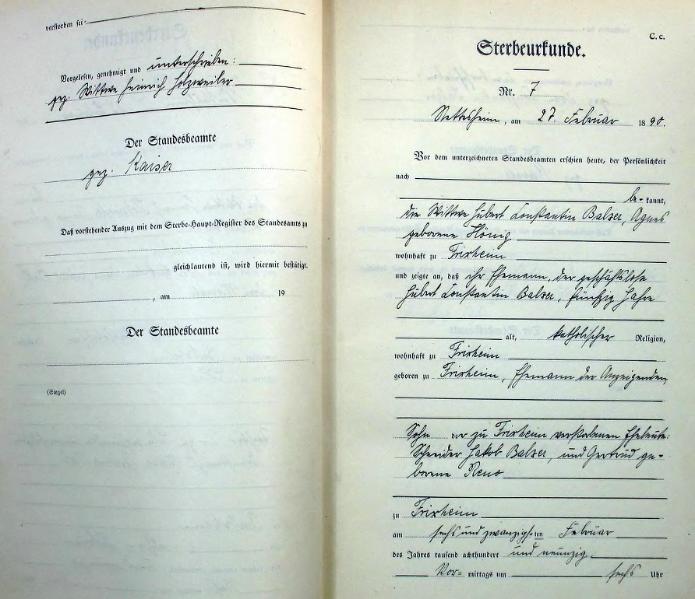 verstorben sei
Vorgelesen, genehmigt und unterschrieben:
gez. Wittwe Heinrich Holzweiler
Der Standesbeamte
gez. Kaiser
Daß vorstehender Auszug mit dem Sterbe-Haupt-Register des Standesamts zu
gleichlautend ist, wird hiermit bestätigt.
, am 19
Der Standesbeamte
(Siegel)
C. c.
Sterbeurkunde.
Nr. 7
Nettesheim, am 27 Februar 1890.
Vor dem unterzeichneten Standesbeamten erschien heute, der Persönlichkeit
nach
be-kannt,
die Wittwe Hubert Constantin Balzer, Agnes
geborene Hönig
wohnhaft zu Frixheim
und zeigte an, daß ihr Ehemann, der geschäftslose
Hubert Constantin Balzer, fünfzig Jahre
alt, katholischer Religion,
wohnhaft zu Frixheim
geboren zu Frixheim, Ehemann der Anzeigenden,
Sohn der zu Frixheim verstorbenen Eheleute
Schneider Jakob Balzer, und Gertrud ge-
borene
zu Frixheim
am sechs und zwanzigsten Februar
des Jahres tausend achthundert und neunzig
Vor= mittags um sechs Uhr